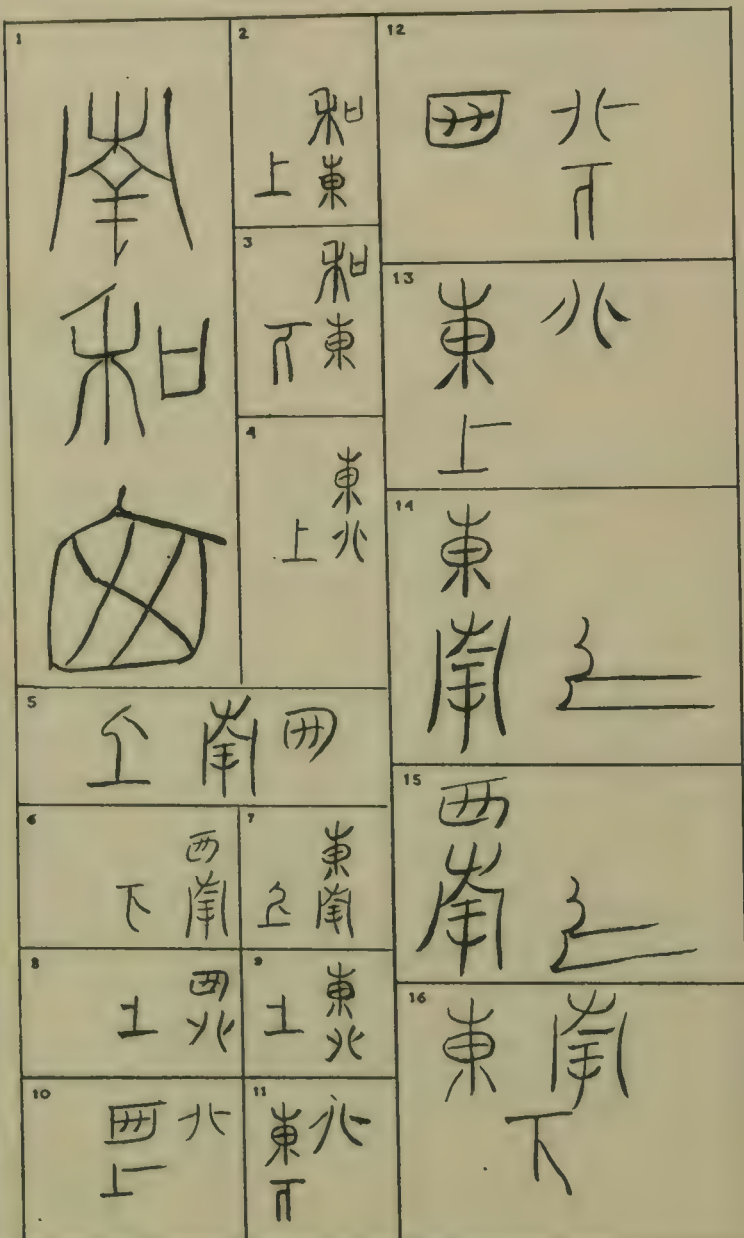 1
南
和
2
和東
上
3
和東
下
4
東北
上
5
西南上
6
西南
下
7
東南
上
8
西北
上
9
東北
上
10
西北
上
11
東北
下
12
西北
下
13
東北
上
14
東南
上
15
西南
上
16
東南
下